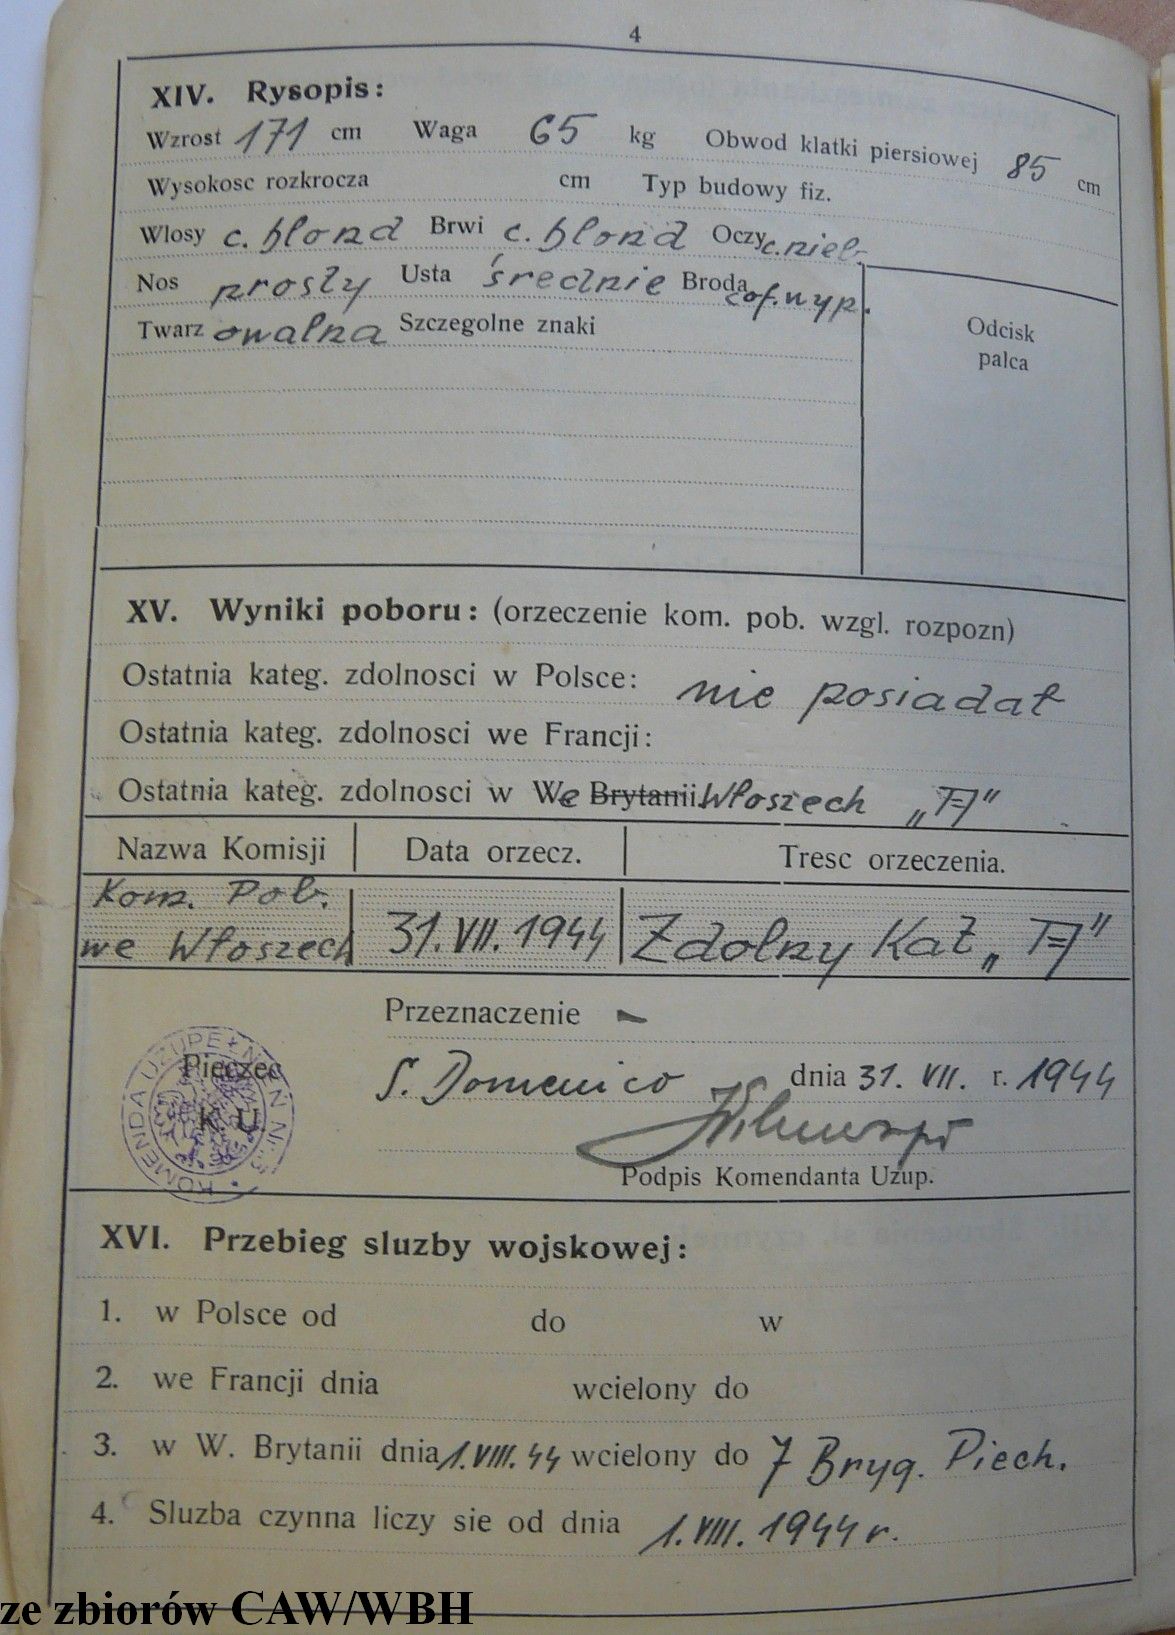 4
XIV. Rysopis:
Wzrost 171 cm Waga 65 kg Obwod klatki piersiowej 85 cm
Wysokosc rozkrocza cm Typ budowy fiz.
Wlosy c. blond Brwi c. blond Oczy c. nieb.
Nos prosty Usta średnie Broda cof. wyp.
Twarz owalna Szczegolne znaki
Odcisk
palca
XV. Wyniki poboru: (orzeczenie kom. pob. wzgl. rozpozn)
Ostatnia kateg. zdolnosci w Polsce: nie posiadał
Ostatnia kateg. zdolnosci we Francji:
Ostatnia kateg. zdolnosci w We Brytanii Włoszech „A"
Nazwa Komisji Data orzecz. Tresc orzeczenia.
Kom. Pob.
we Włoszech 31.VII.1944 Zdolny Kat „A"
Przeznaczenie -
S. Domenico dnia 31. VII. r. 1944
Podpis Komendanta Uzup.
Pieczec
K. U
KOMENDA UZUPEŁNIEŃ Nr. 3
XVI. Przebieg sluzby wojskowej:
1. w Polsce od do w
2. we Francji dnia wcielony do
3. w W. Brytanii dnia 1.VIII.44 wcielony do 7 Bryg. Piech.
4. Sluzba czynna liczy sie od dnia 1.VIII.1944 r.
ze zbiorów CAW/WBH